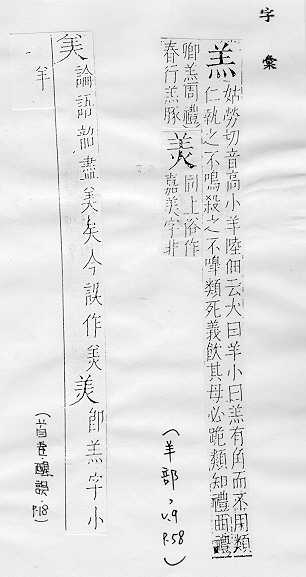 字彙
羔 姑勞切音高小羊陸佃云大曰羊小曰羔有角而不用類
仁執之不鳴殺之不嘷類死義飲其母必跪類知禮曲禮
卿羔周禮
春行羔豚
羙 同上俗作
嘉美字非
(羊部, v.9 P.58)
美 論語韶盡美矣今誤作羙 羙 即羔字小
羊
(首卷.醒誤 P.18)